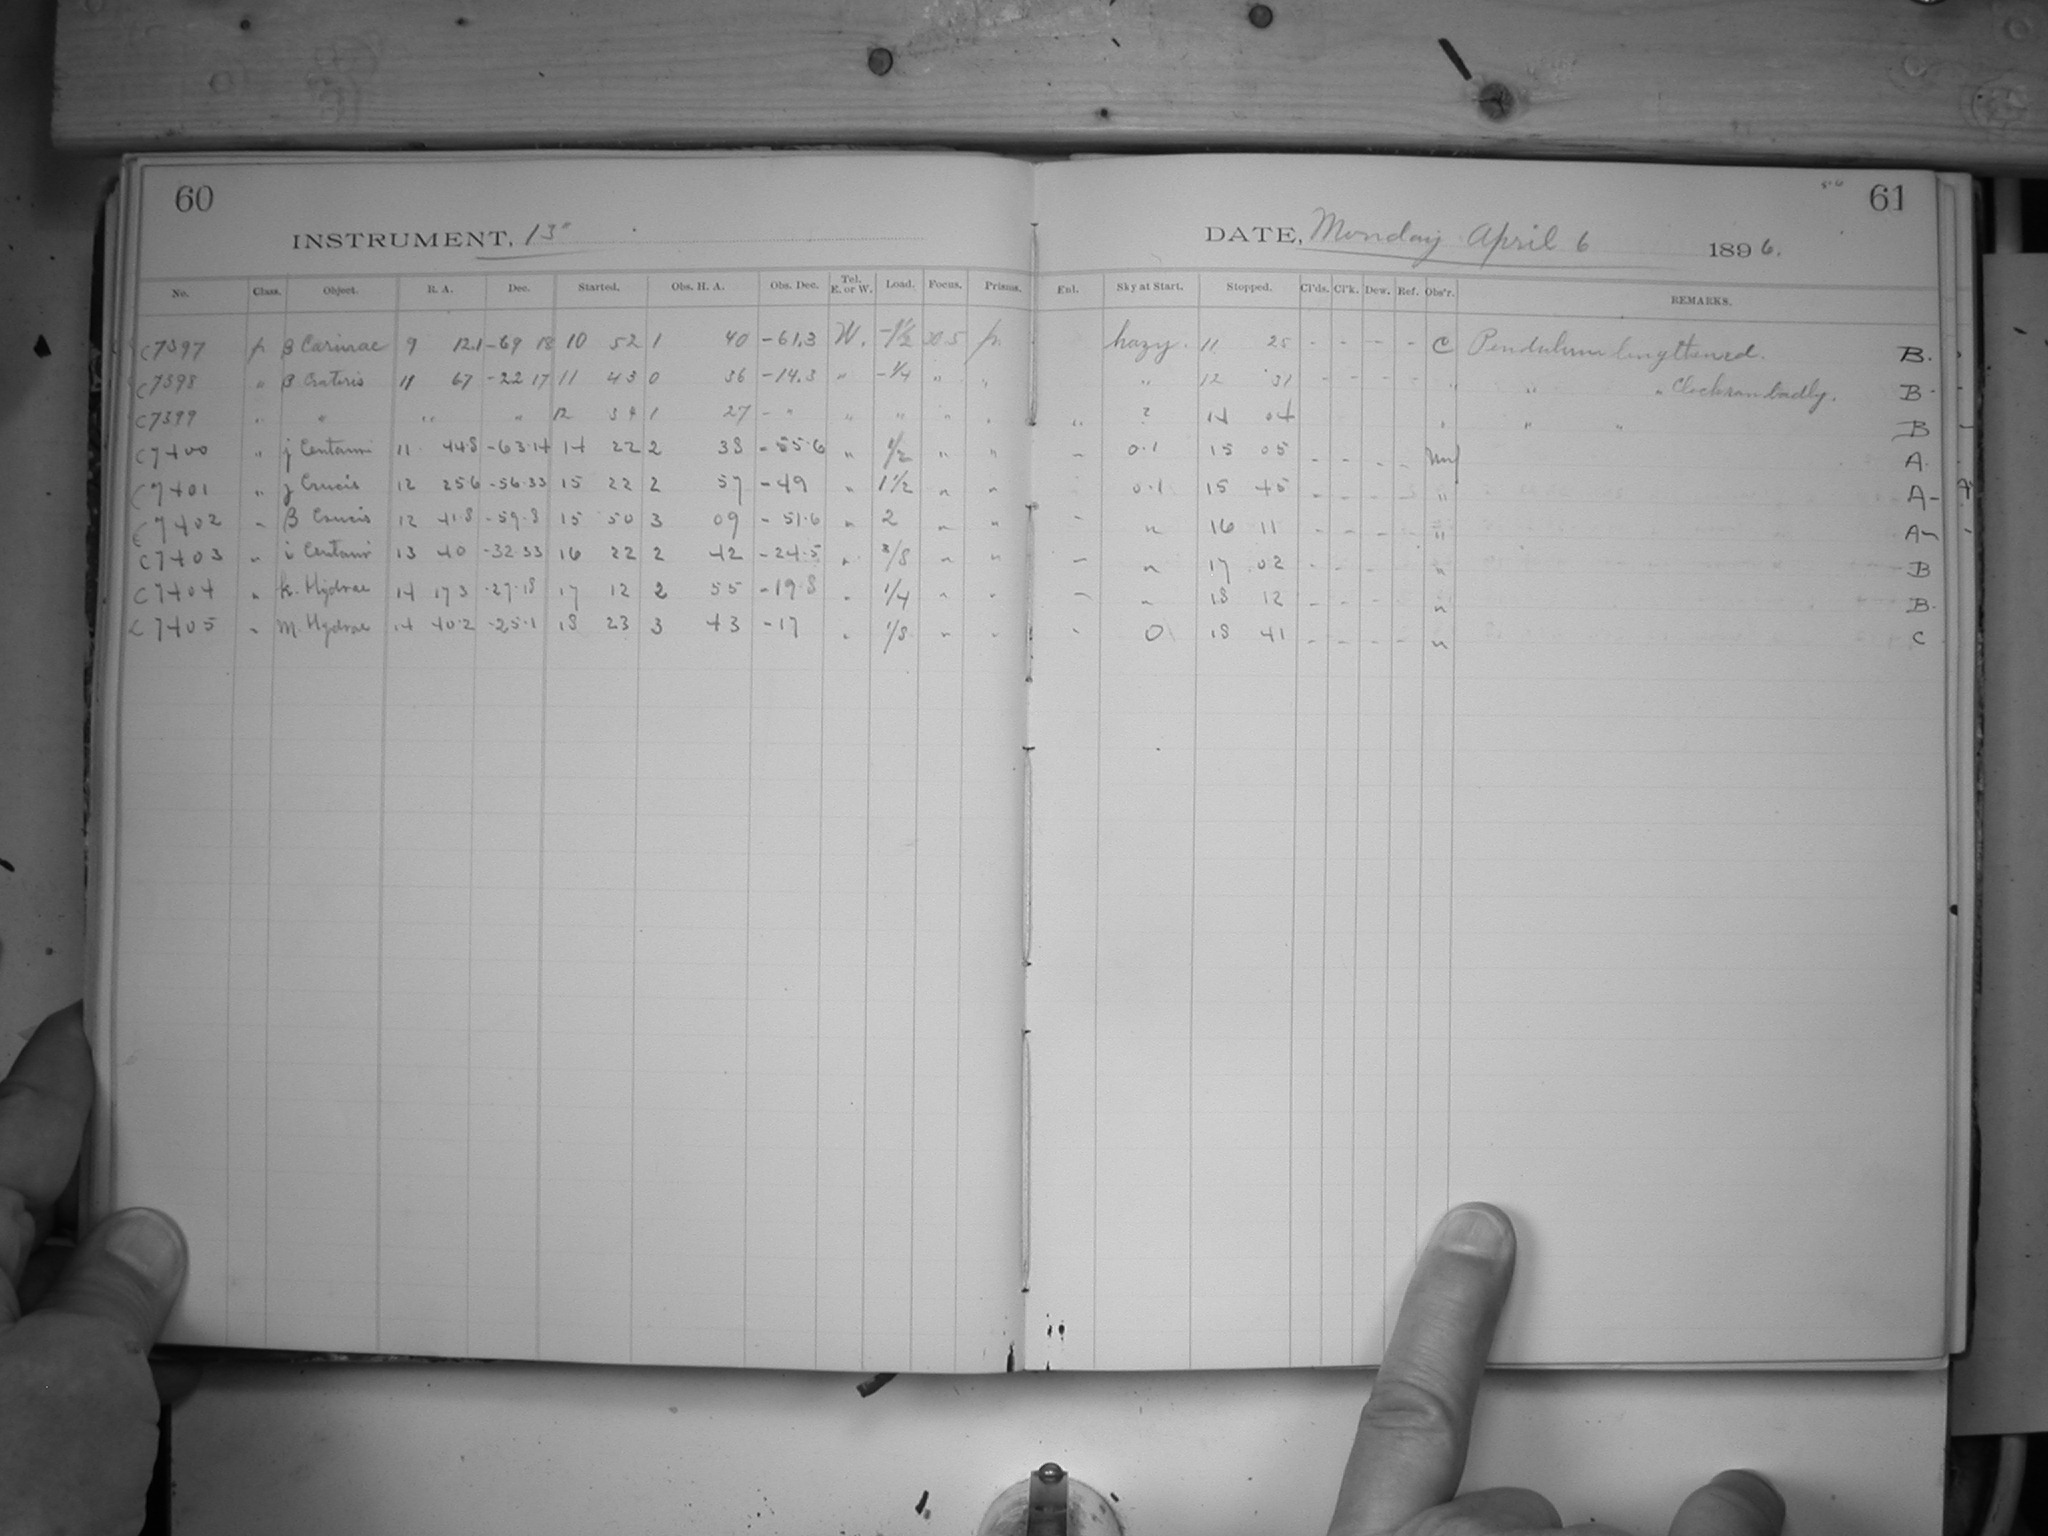 60
INSTRUMENT, 13"
No. Class. Object. R. A. Dec. Started. Obs. H. A. Obs. Dec. Tel. E. or W. Load. Focus. Prisms.
C7397 p β Carinae 9 12.1 -69 18 10 52 1 40 -61.3 W. -1½ p.
C7398 " β Crateris 11 67 -22 17 11 43 0 36 -14.3 " -¼ " "
C7399 " " " " 12 1 27 - " " " " "
C7400 " j Centauri 11 448 -63.14 14 22 2 38 -55.6 " 1/2 " "
C7401 " j Crucis 12 256 -56.33 15 22 2 57 -49 " 1 1/2 " "
C7402 " β Crucis 12 41.8 -59.8 15 50 3 09 -51.6 " 2 " "
C7403 " i Centauri 13 40 -32.33 16 22 2 42 -24.5 " 3/8 " "
C7404 " k. Hydrae 14 173 -27.18 17 12 2 55 -19.8 " 1/4 " "
C7405 " m. Hydrae 14 40.2 -25.1 18 23 3 43 -17 " 1/8 " "
61
DATE, Monday April 6 1896.
Enl. Sky at Start. Stopped. Cl'ds. Cl'k. Dew. Ref. Obs'r. REMARKS.
hazy. 11 25 - - - - C Pendulum lengthened. B.
" 12 31 - - - - " " " Clock ran badly. B -
" ? 14 04 " " " B
- 0.1 15 05 - - - - A.
0.1 15 45 - - - - " A-
- " 16 11 - - - - " A-
- " 17 02 - - - - " B
- " 18 12 - - - - " B.
- 0 18 41 - - - - " C